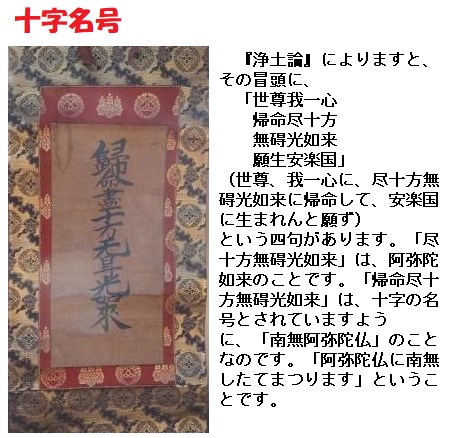 十字名号
歸命盡十方无㝵光如來
『浄土論』によりますと、
その冒頭に、
「世尊我一心
帰命尽十方
無碍光如来
願生安楽国」
（世尊、我一心に、尽十方無
碍光如来に帰命して、安楽国
に生まれんと願ず）
という四句があります。「尽
十方無碍光如来」は、阿弥陀
如来のことです。「帰命尽十
方無碍光如来」は、十字の名
号とされていますよう
に、「南無阿弥陀仏」のこと
なのです。「阿弥陀仏に南無
したてまつります」というこ
とです。